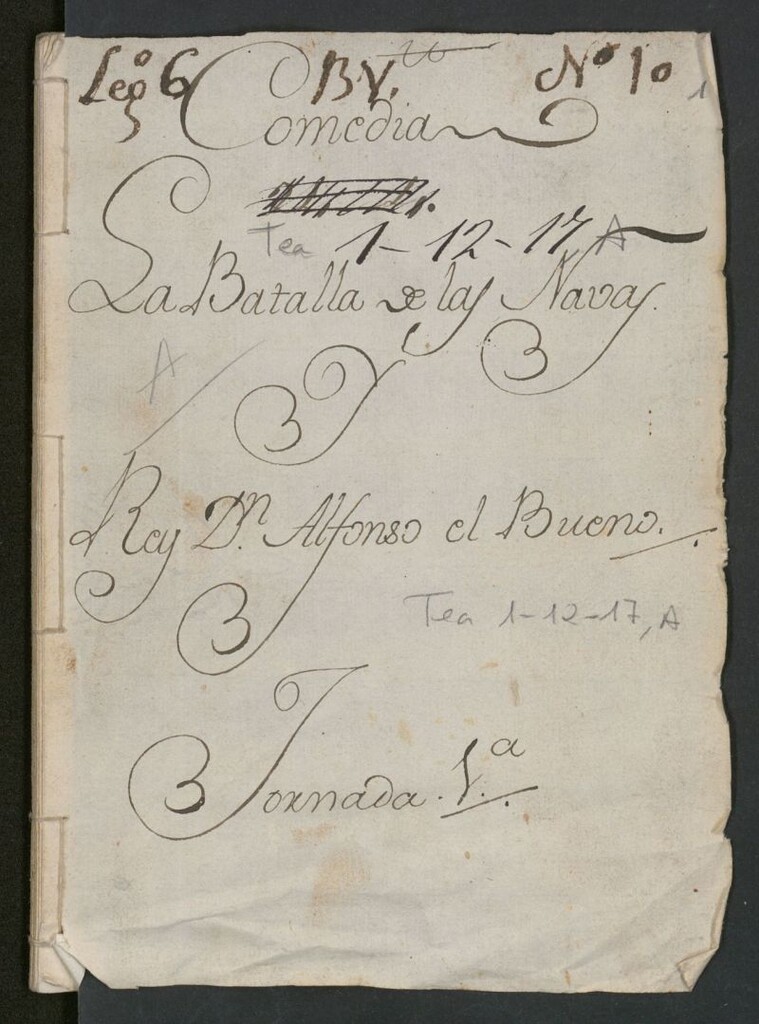 Lego 6 BV. No 10
1
Comedia
Tea 1-12-17 A
La Batalla de las Navas.
A
Y
Rey Dn. Alfonso el Bueno.
Tea 1-12-17, A
Jornada. 1.a